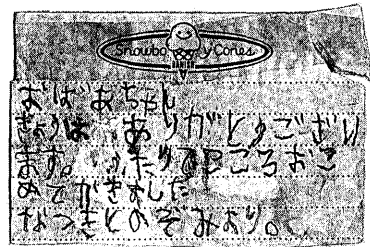 Snowbo y Cones
おばあちゃん
きょうは、ありがとうござい
ます。ふたりでこころおこ
めてかきました
なつきとのぞみより。